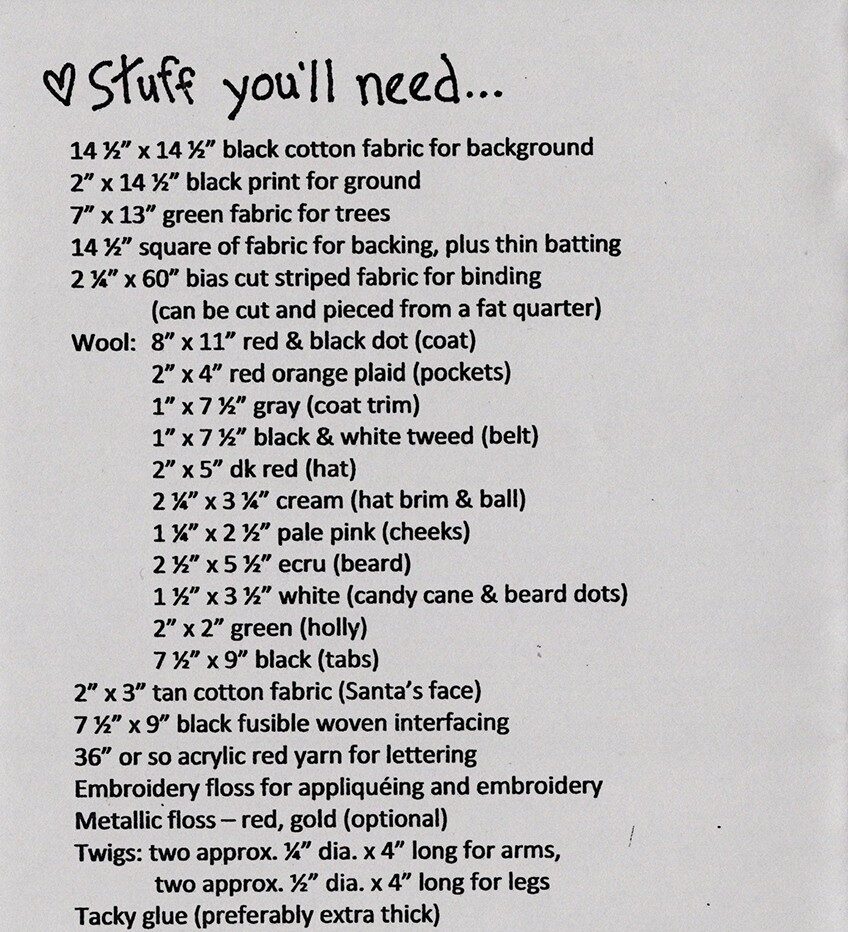 ♡ Stuff you'll need...
14 ½" x 14 ½" black cotton fabric for background
2" x 14 ½" black print for ground
7" x 13" green fabric for trees
14 ½" square of fabric for backing, plus thin batting
2 ¼" x 60" bias cut striped fabric for binding
(can be cut and pieced from a fat quarter)
Wool: 8" x 11" red & black dot (coat)
2" x 4" red orange plaid (pockets)
1" x 7 ½" gray (coat trim)
1" x 7 ½" black & white tweed (belt)
2" x 5" dk red (hat)
2 ¼" x 3 ¼" cream (hat brim & ball)
1 ¼" x 2 ½" pale pink (cheeks)
2 ½" x 5 ½" ecru (beard)
1 ½" x 3 ½" white (candy cane & beard dots)
2" x 2" green (holly)
7 ½" x 9" black (tabs)
2" x 3" tan cotton fabric (Santa's face)
7 ½" x 9" black fusible woven interfacing
36" or so acrylic red yarn for lettering
Embroidery floss for appliquéing and embroidery
Metallic floss – red, gold (optional)
Twigs: two approx. ¼" dia. x 4" long for arms,
two approx. ½" dia. x 4" long for legs
Tacky glue (preferably extra thick)